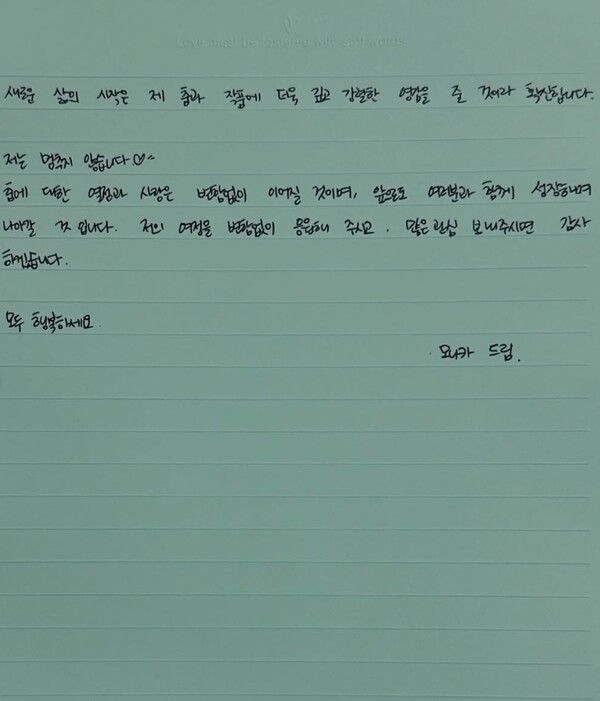 Love must be fostered with soft words
새로운 삶의 시작은 제 춤과 작품에 더욱 깊고 강렬한 영감을 줄 것이라 확신합니다.
저는 멈추지 않습니다♡~
춤에 대한 열정과 사랑은 변함없이 이어질 것이며, 앞으로도 여러분과 함께 성장하며
나아갈 것 입니다. 저의 여정을 변함없이 응원해 주시고, 많은 관심 보내주시면 감사
하겠습니다.
모두 행복하세요.
모니카 드림.